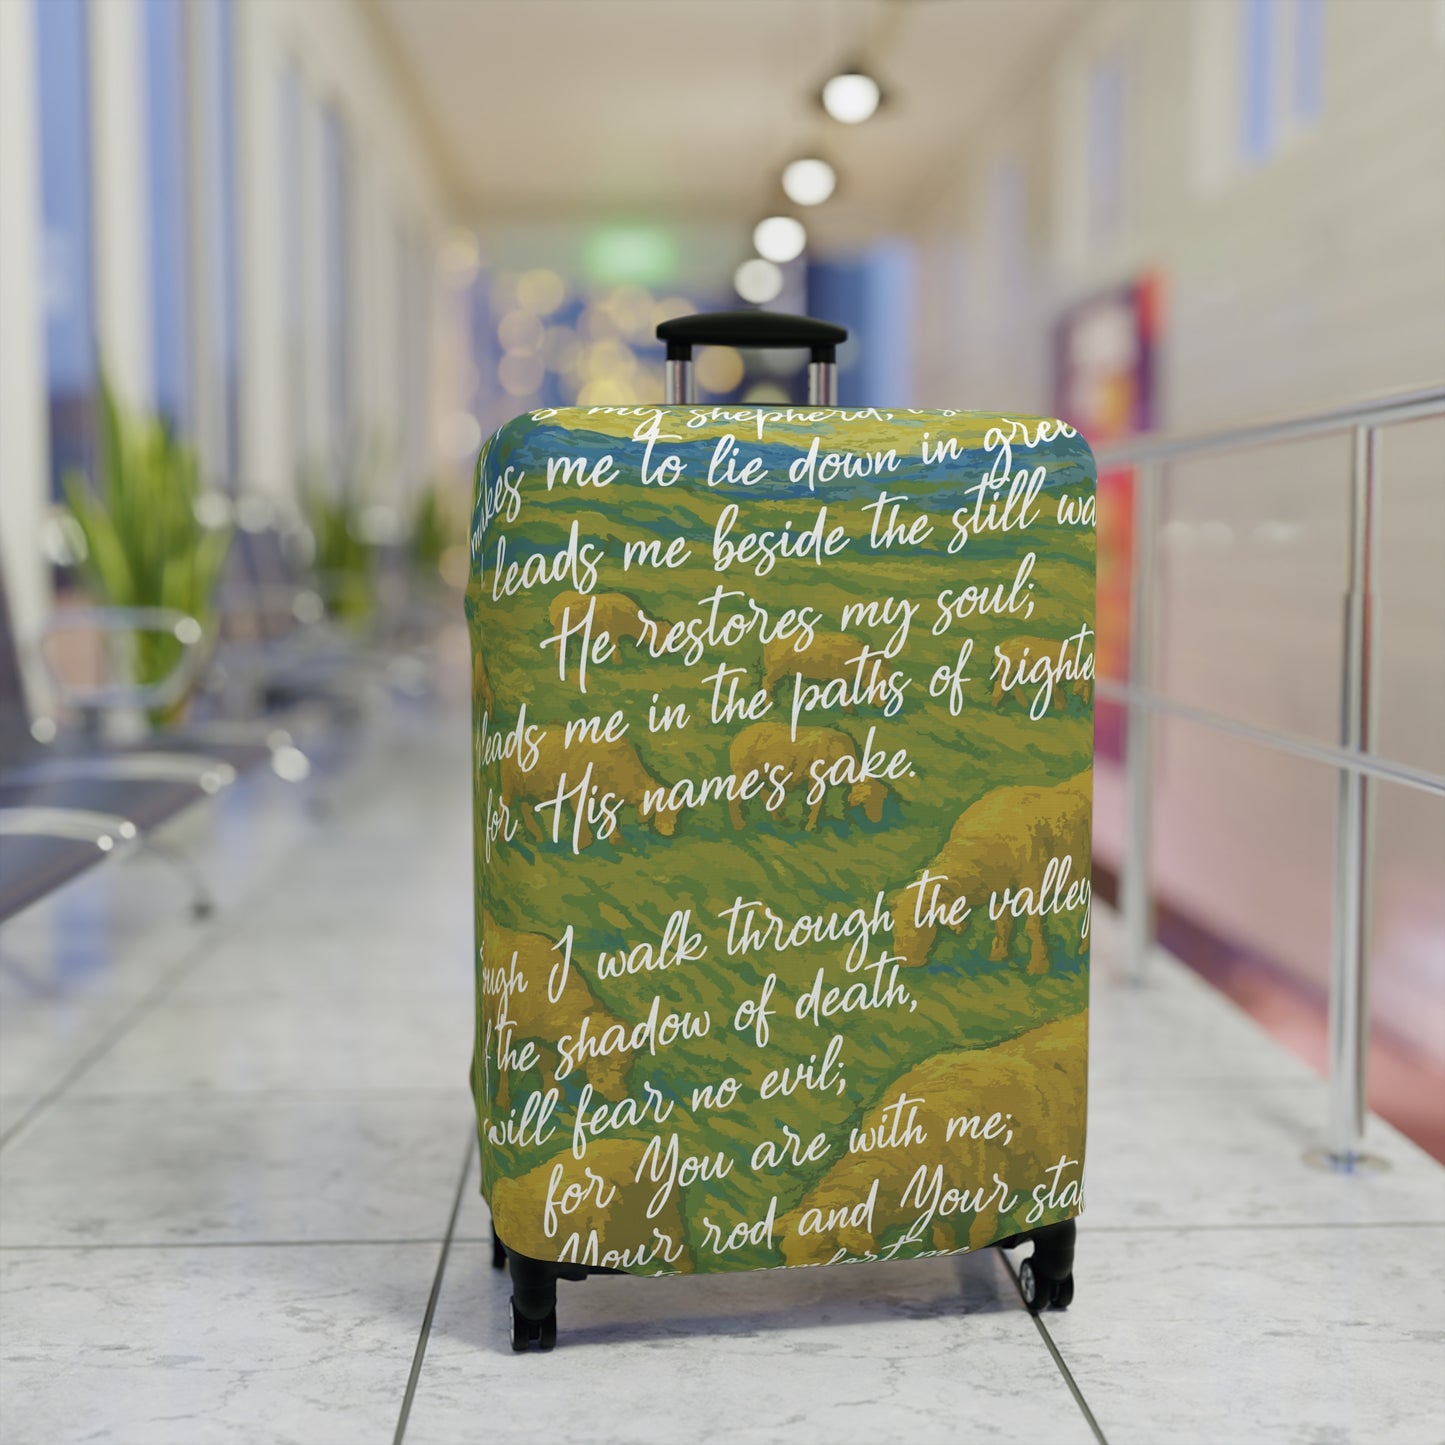 my shepherd, I
me to lie down in
leads me beside the still
He restores my soul;
leads me in the paths of
for His name's sake.
I walk through the valley
the shadow of death,
will fear no evil;
for You are with me;
Your rod and Your
me